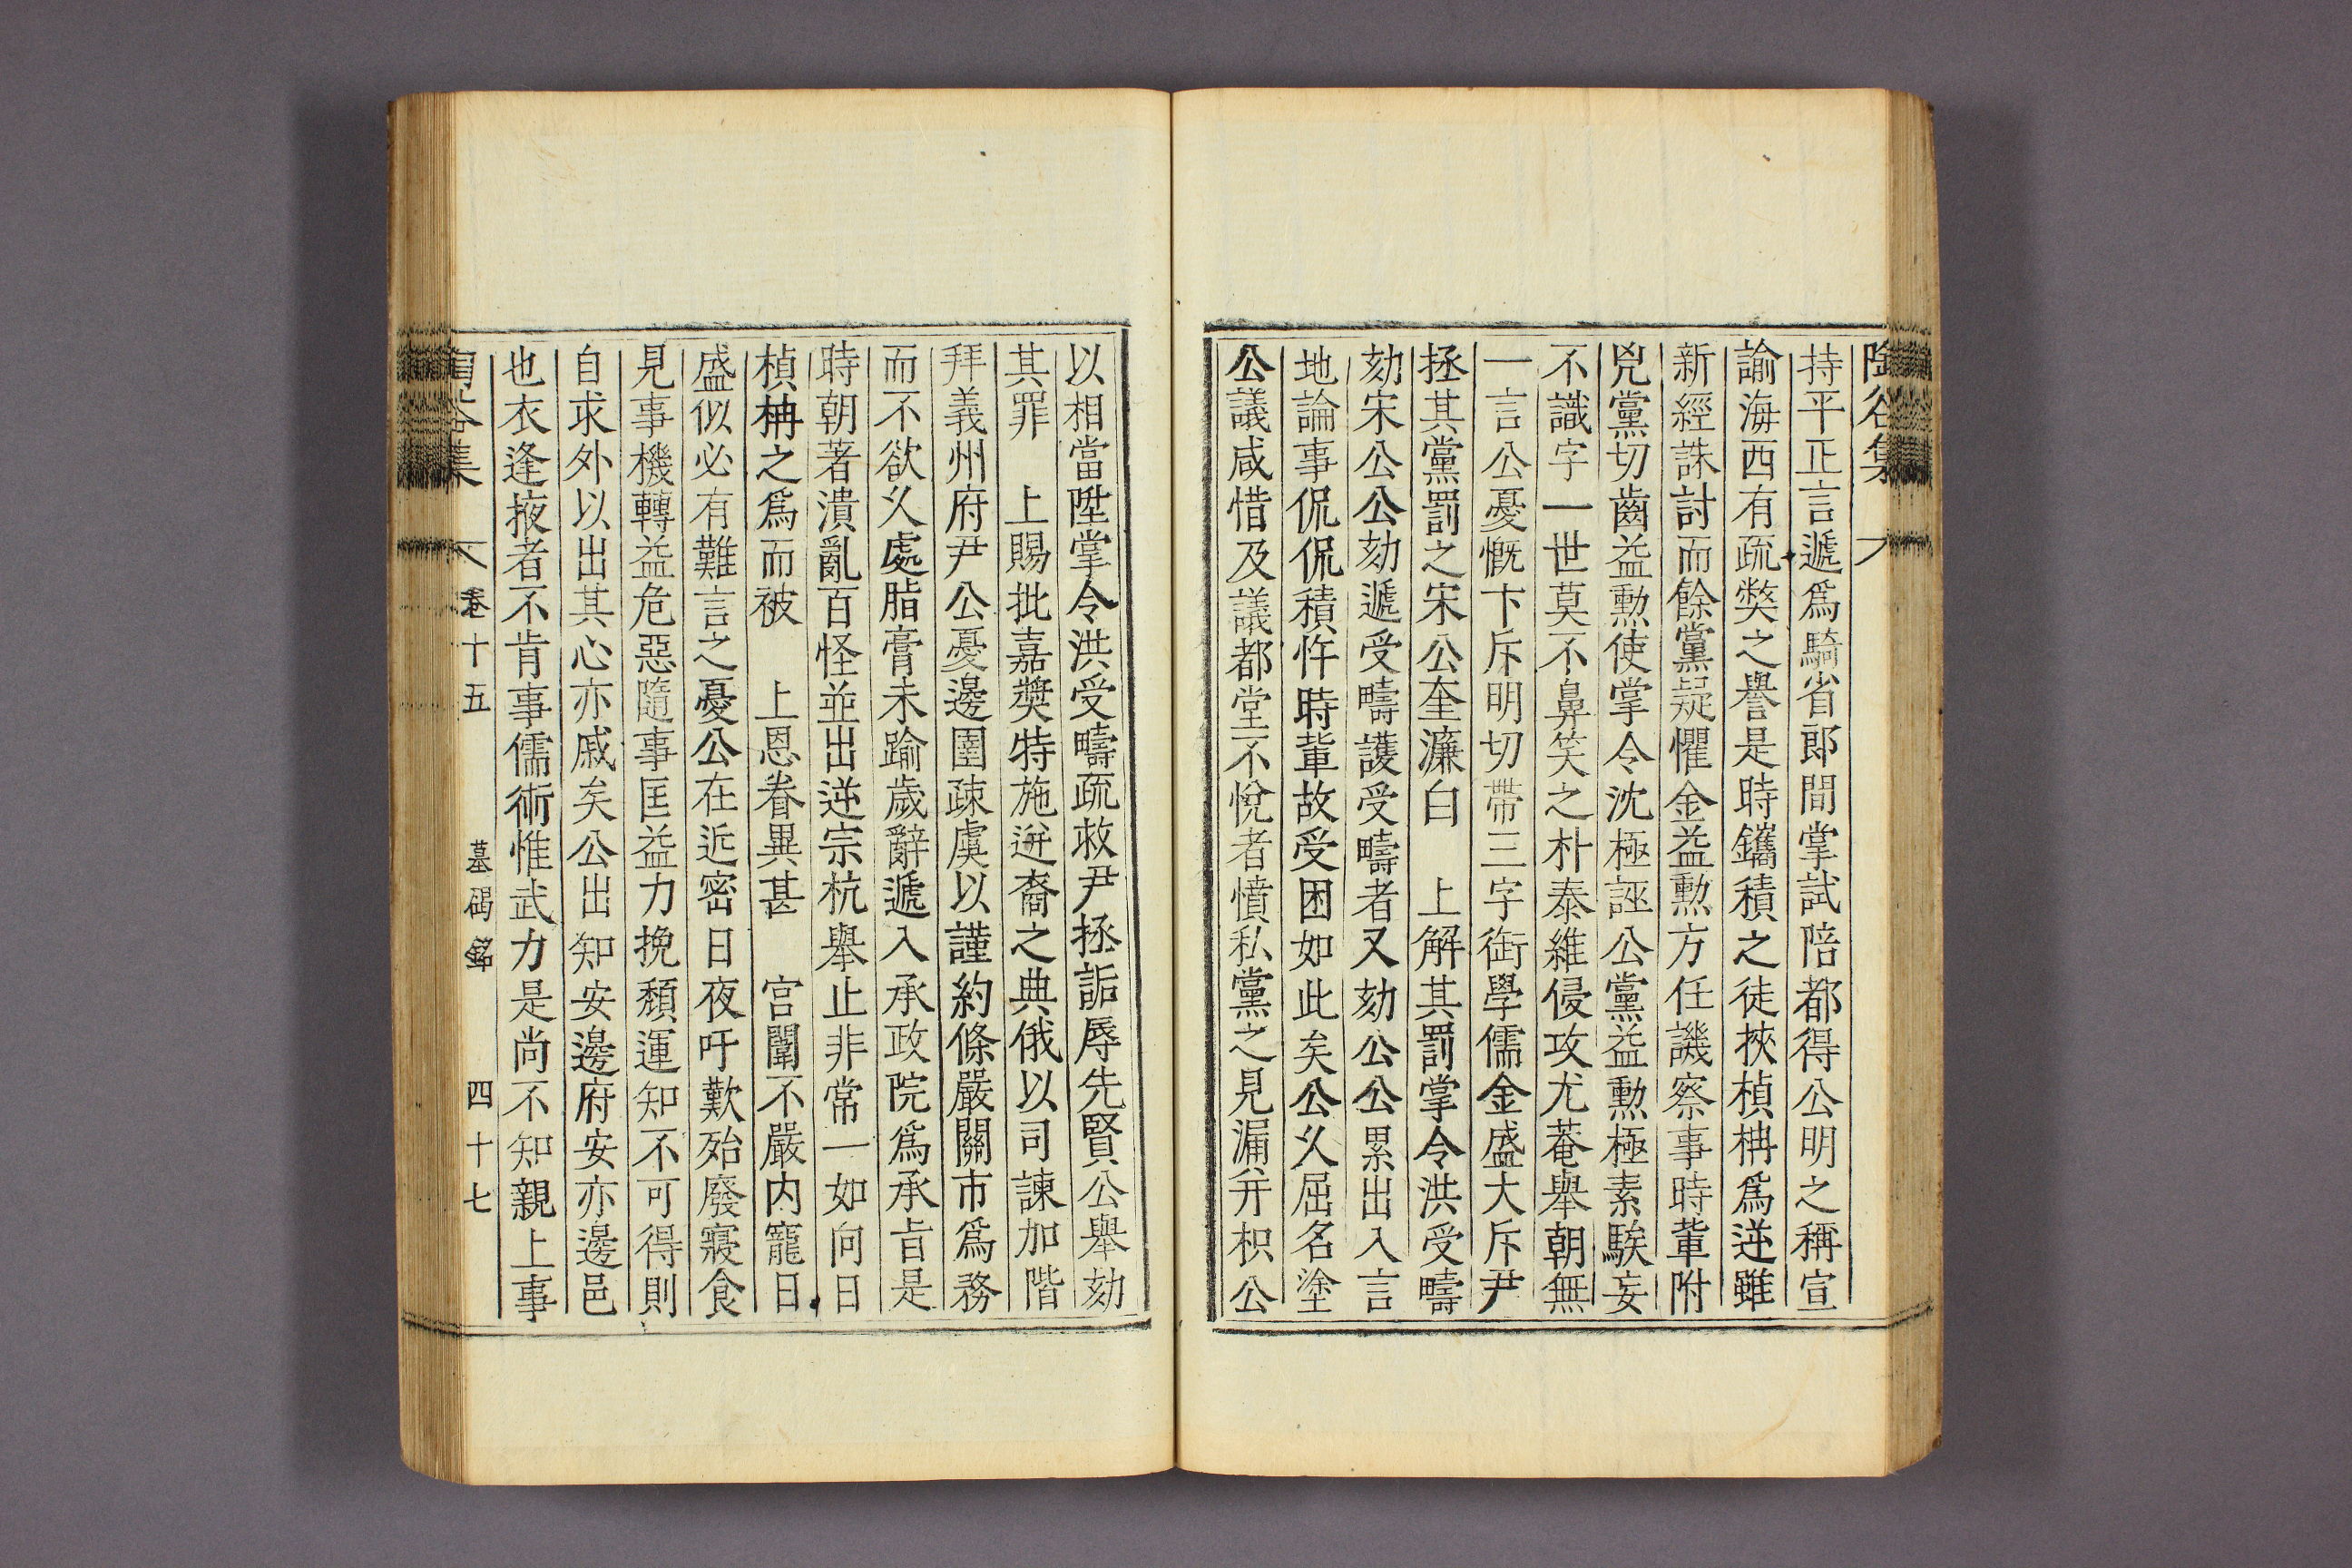 陶谷集
持平正言遞爲騎省郎間掌試陪都得公明之稱宣
諭海西有疏獘之譽是時鑴積之徒挾楨柟爲逆雖
新經誅討而餘黨疑懼金益勲方任譏察事時軰附
兇黨切齒益勲使掌令沈極誣公黨益勲極素騃妄
不識字一世莫不鼻笑之朴泰維侵攻尤菴舉朝無
一言公憂慨卞斥明切帶三字銜學儒金盛大斥尹
拯其黨罰之宋公奎濂白　上解其罰掌令洪受疇
劾宋公公劾遞受疇護受疇者又劾公公累出入言
地論事侃侃積忤時軰故受困如此矣公乆屈名塗
公議咸惜及議都堂一不悅者憤私黨之見漏幷枳公
以相當陞掌令洪受疇疏救尹拯詬辱先賢公舉劾
其罪　上賜批嘉奬特施迸裔之典俄以司諫加階
拜義州府尹公憂邊圉疎虞以謹約條嚴關市爲務
而不欲乆處脂膏未踰歲辭遞入承政院爲承旨是
時朝著潰亂百怪並出逆宗杭舉止非常一如向日
楨柟之爲而被　上恩眷異甚　宮闈不嚴内寵日
盛似必有難言之憂公在近密日夜吁歎殆廢寢食
見事機轉益危惡隨事匡益力挽頽運知不可得則
自求外以出其心亦戚矣公出知安邊府安亦邊邑
也衣逢掖者不肯事儒術惟武力是尚不知親上事
陶谷集　卷十五　墓碣銘　四十七